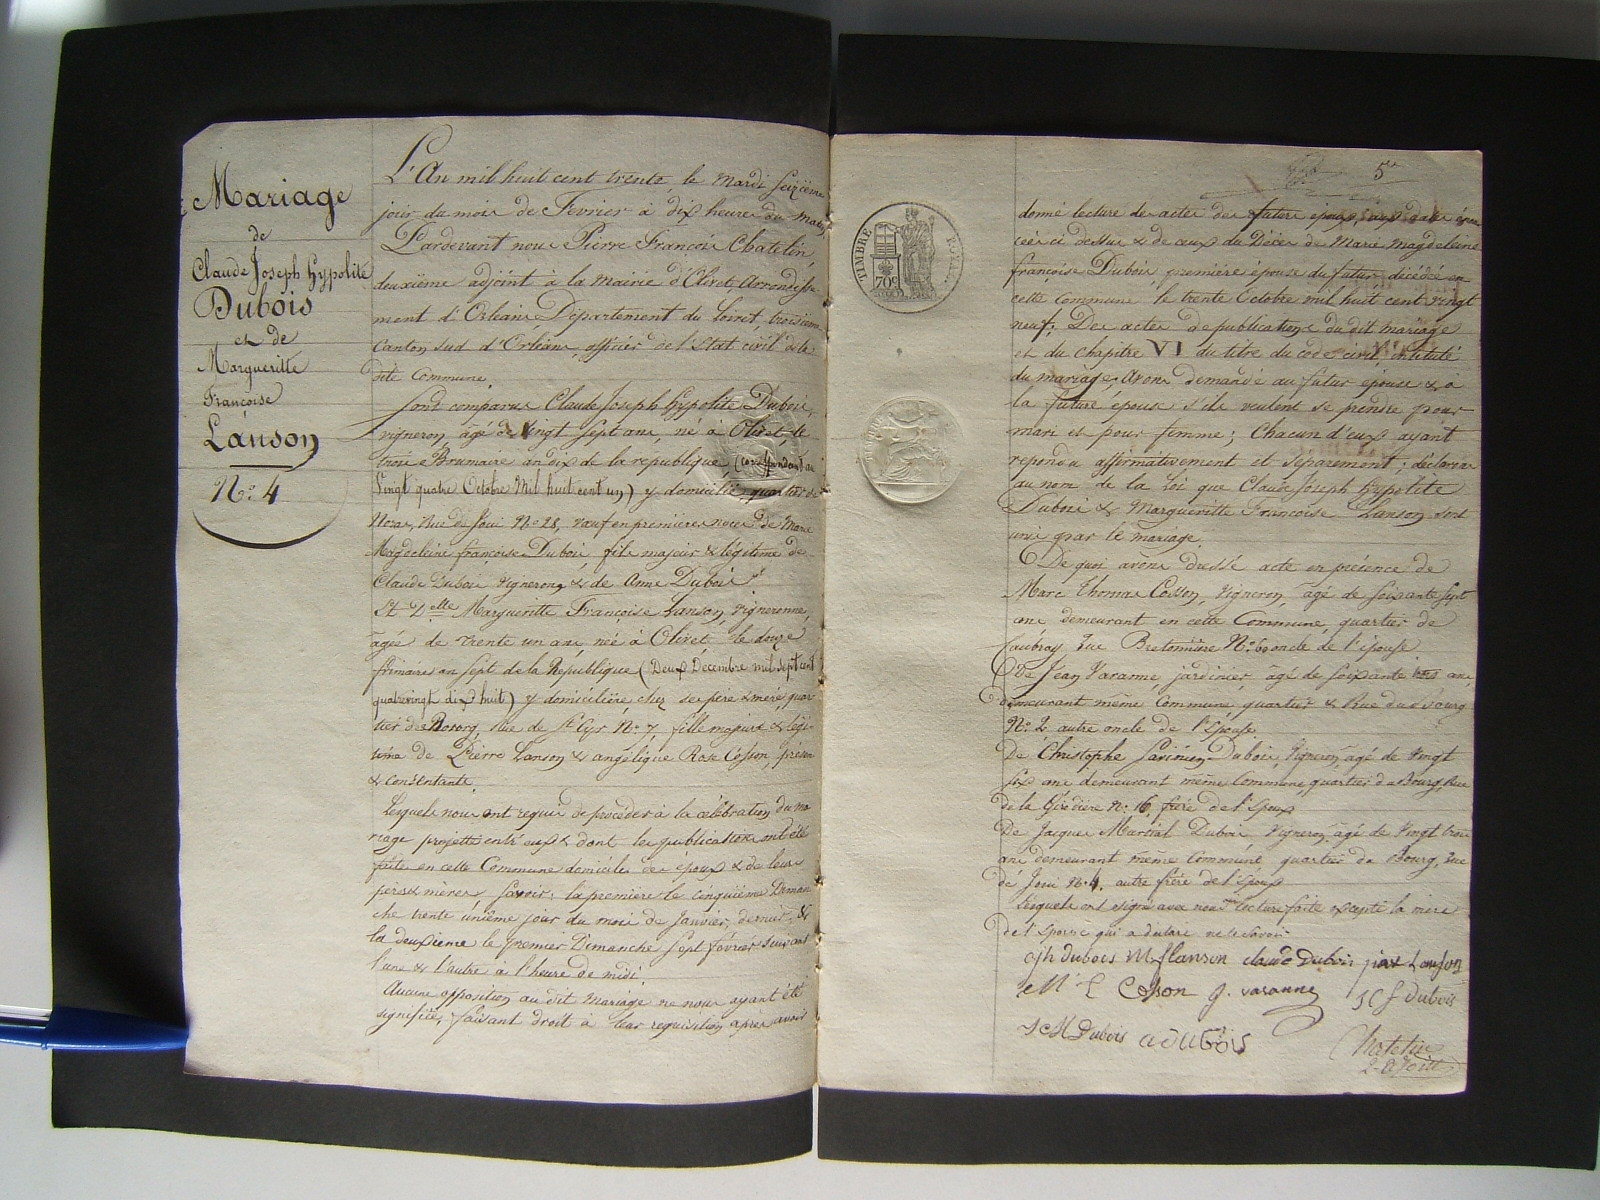 Mariage
de
Claude Joseph Hypolite
Dubois
et de
Margueritte
Françoise
Lanson
N.º 4
L'An mil huit cent trente, le Mardi Seizième
jour du mois de Fevrier à dix heures du matin
Pardevant nous Pierre François Chatelin,
deuxième adjoint à la Mairie d'Olivet Arrondisse
ment d'Orléans Département du Loiret, troisième
Canton sud d'Orléans, officier de l'Etat civil de la
dite Commune.
Sont comparus Claude Joseph Hypolite Dubois,
vigneron, âgé de Vingt sept ans, né à Olivet, le
trois Brumaire an dix de la republique, (correspondant au
Vingt quatre Octobre Mil huit cent un) y domicilié quartier de
Noras, Rue de Joui Nº 28, veuf en premières noces de Marie
Magdeleine françoise Dubois, fils majeur & légitime de
Claude Dubois Vigneron & de Anne Dubois
Et Delle Margueritte Françoise Lanson, Vigneronne,
âgée de trente un ans née à Olivet le douze
frimaire an sept de la République (Deux Décembre mil sept cent
quatrevingt dix huit) y domiciliée chez ses père & mère, quar
tier de Rue de St Cyr Nº 7, fille majeure & légi
time de Pierre Lanson & angélique Rose Cosson, présens
& consentants.
Lesquels nous ont requis de procéder à la célébration du ma
riage projetté entr'eux & dont les publications ont été
faites en cette Commune domicile des époux & de leurs
pères & mères, savoir: la première le cinquième Diman
che trente unième jour du mois de Janvier, dernier, &
la deuxieme le premier Dimanche sept février suivant
l'une & l'autre à l'heure de midi.
Aucune opposition au dit Mariage ne nous ayant été
signifiée, faisant droit à leur requisition après avoir
5e
TIMBRE
ROYAL
70c
donné lecture des actes des future époux,
cés ci dessus & de ceux du Décès de Marie Magdeleine
françoise Dubois, première épouse du futur décédée en
cette Commune le trente Octobre mil huit cent vingt
neuf; Des actes de publications du dit mariage
et du Chapitre VI du titre du code civil, intitulé
du mariage; Avons demandé au futur époux & à
la future épouse s'ils veulent se prendre pour
mari et pour femme; Chacun d'eux ayant
repondu affirmativement et séparement; déclarons
au nom de la Loi que Claude Joseph Hypolite
Dubois & Margueritte Françoise Lanson sont
unis par le mariage.
De quoi avons dressé acte en présence de
Marc Thomas Cosson, Vigneron, âgé de soixante sept
ans demeurant en cette Commune, quartier de
Caubray, rue Bretonnière Nº 69 oncle de l'épouse.
De Jean Varanne jardinier, âgé de soixante ans,
demeurant même Commune quartier & Rue du Bourg
Nº 2 autre oncle de l'Epouse.
De Christophe Dubois, Vigneron, agé de Vingt
six ans demeurant même Commune, quartier du Bourg, Rue
de la Nº 16, frère de l'Epoux
De Jacques Martial Dubois, Vigneron âgé de Vingt trois
ans demeurant même Commune quartier du Bourg, Rue
de Joui Nº 4, autre frère de l'Epoux
Lesquels ont signé avec nous lecture faite excepté la mère
de l'Epouse qui a déclaré ne le savoir
cjh dubois M f lanson claude Dubois Lanson
M t Cosson J. varanne J C S dubois
J M Dubois a dubois
Chatelin
2e adjoint